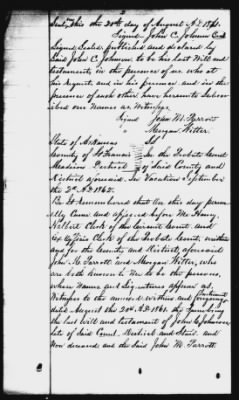 Seal, this the 20th day of August A.D. 1861.
Signed John C. Johnson
Signed Sealed published and declared by
Said John C. Johnson to be his last Will and
testament, in the presence of us who at
his request and in his presence and in the
presence of each other have hereunto Subscri
bed our Names as Witnesses
Signed John M. Parrott
Morgan Witter.
State of Arkansas
County of St Francis In the Probate Court
of Said County and
District aforesaid. In Vacation September
the 2d A.D. 1862.
Be it remembered that on this day person
ally came and appeared before me Henry
Clerk of the Circuit Court and
Ex Officio Clerk of the Probate Court, within
and for the County and District aforesaid
John M. Parrott and Morgan Witter, who
are both known to me to be the persons,
whose Names and Signatures appear as
Witnesses to the annexed written and foregoing
dated August the 20th A.D. 1861. the Same being
the last will and testament of John C. Johnson
late of Said County District and State. and
Now deceased and the Said John M. Parrott